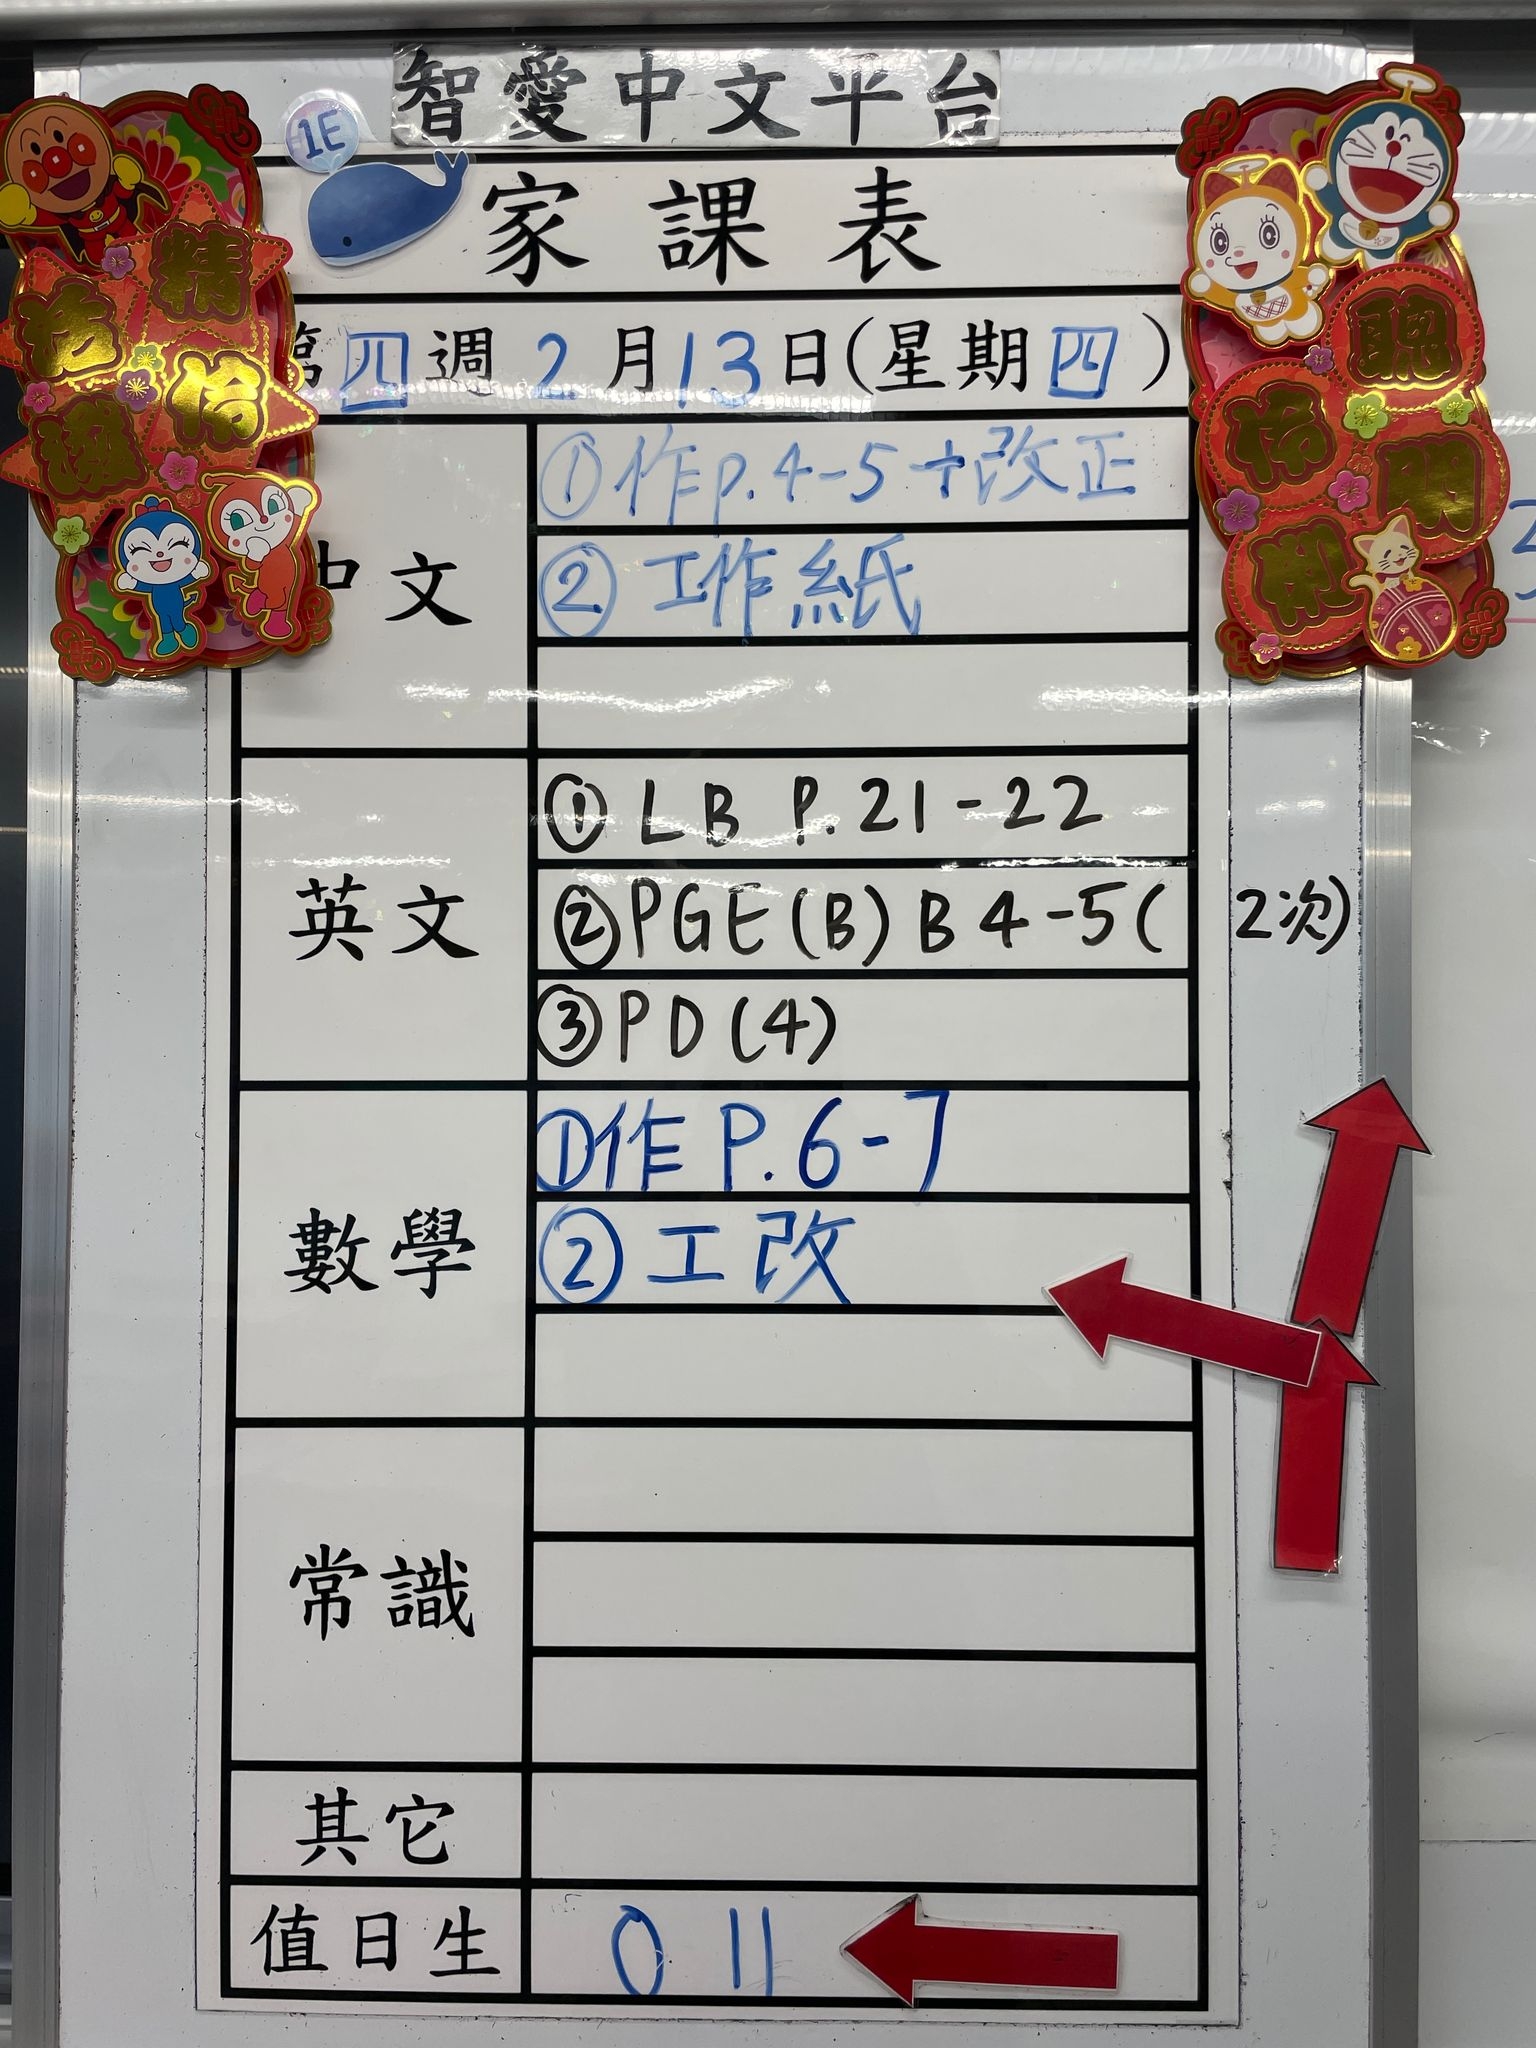 智愛中文平台
1E
家課表
第四週2月13日(星期四)
中文
①作p.4-5+改正
②工作紙
英文
①LB P.21-22
②PGE(B)B4-5(2次)
③PD(4)
數學
①作P.6-7
②工改
常識
其它
值日生
0 11